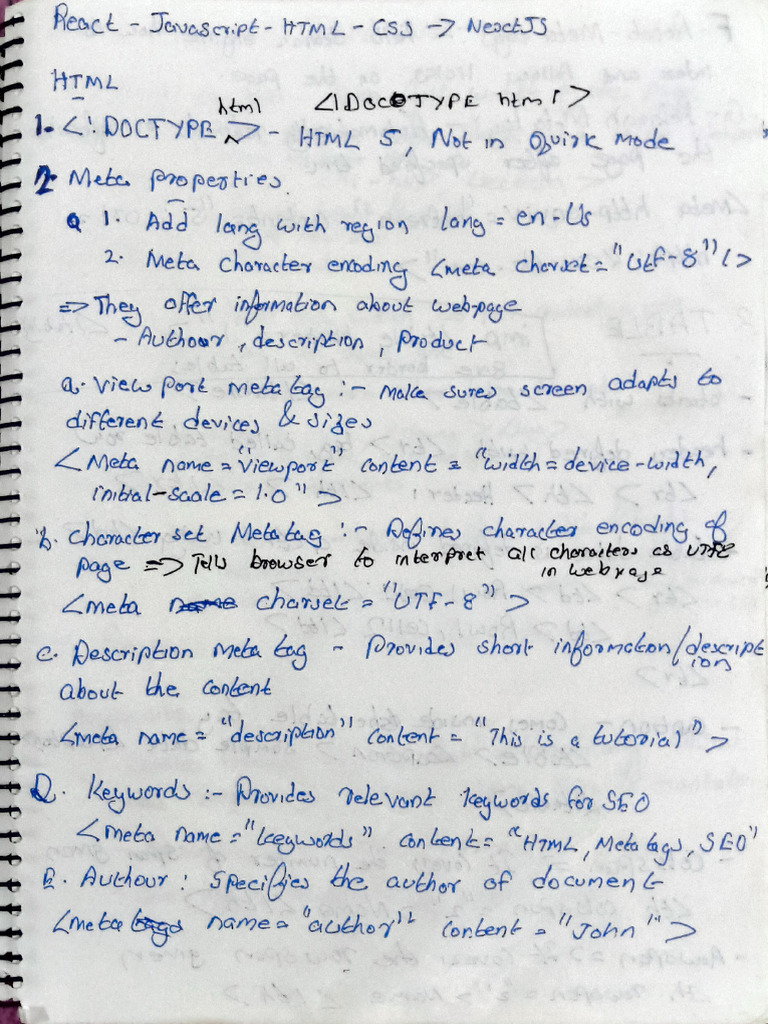 React - Javascript - HTML - CSS -> NextJS
HTML
html <!DOCTYPE html>
1. <!DOCTYPE > - HTML 5, Not in Quirk mode
2. Meta properties
1. Add lang with region lang = en-Us
2. Meta Character encoding <meta charset = "Utf-8" />
=> They offer information about webpage
- Authour, description, Product
a. View port meta tag :- Make sures screen adapts to
different devices & sizes
<Meta name = "viewport" content = "width = device-width,
initial-scale = 1.0" >
b. Character set Metatag :- Defines character encoding of
page => Tells browser to interpret all characters as UTF8
in webpage
<meta charset = "UTF-8" >
c. Description meta tag - Provides short information/description
about the content
<meta name = "description" content = "This is a tutorial" >
D. Keywords :- Provides relevant keywords for SEO
<meta name = "keywords" content = "HTML, Meta tags, SEO"
E. Authour : Specifies the author of document
<meta name = "author" content = "John" >